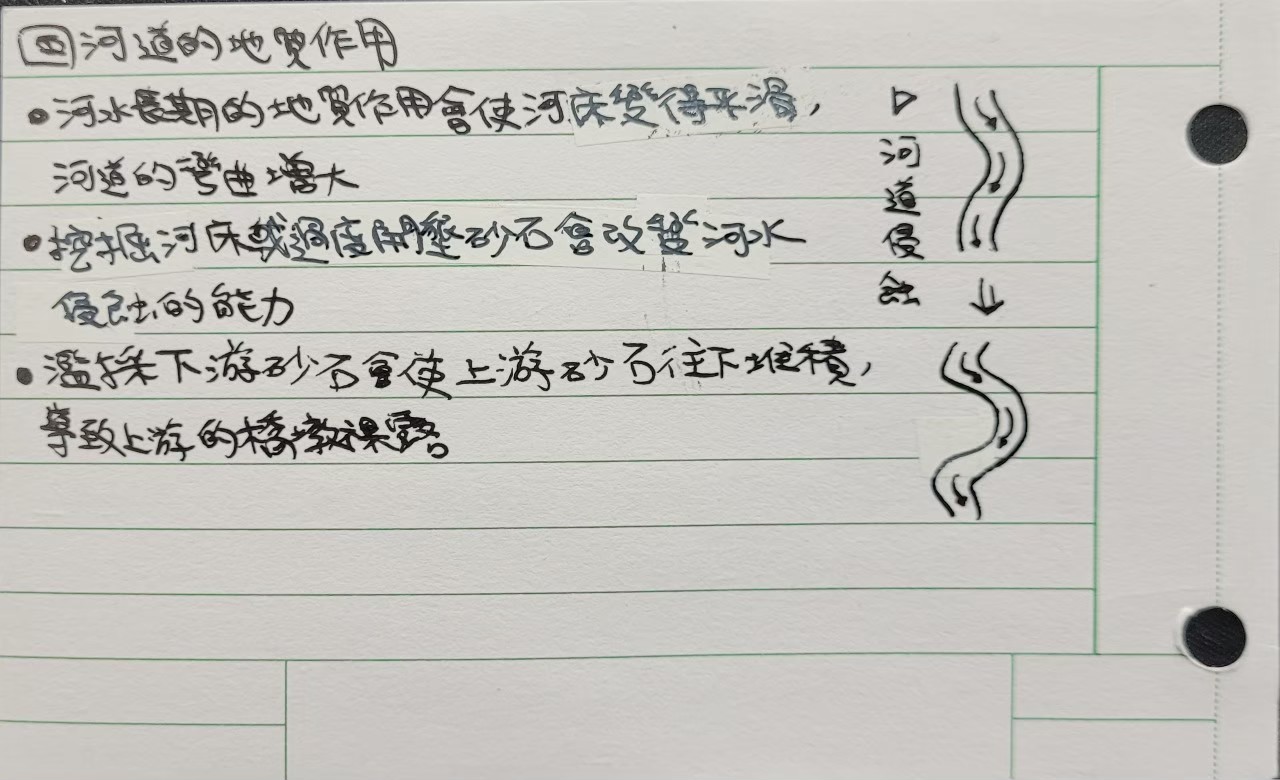 四 河道的地質作用
•河水長期的地質作用會使河床變得平滑，
河道的彎曲增大
•挖掘河床或過度開墾砂石會改變河水
侵蝕的能力
•濫採下游砂石會使上游砂石往下堆積，
導致上游的橋墩裸露。
▷河道侵蝕